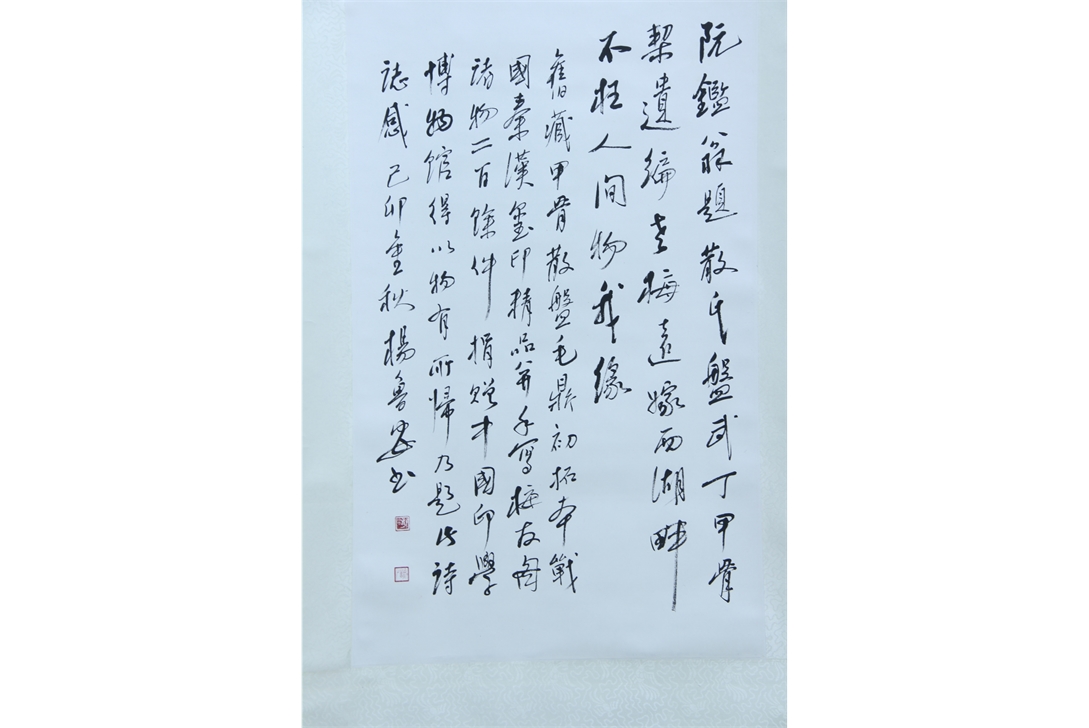 阮鑑翁題散氏盤武丁甲骨
栔遺編老梅遠嫁西湖畔
不枉人間物我緣
舊藏甲骨散盤毛鼎初拓本戰
國秦漢璽印精品并手寫梅友圖
諸物二百餘件捐贈中國印學
博物館得以物有所歸乃題此詩
誌感己卯金秋楊魯安書